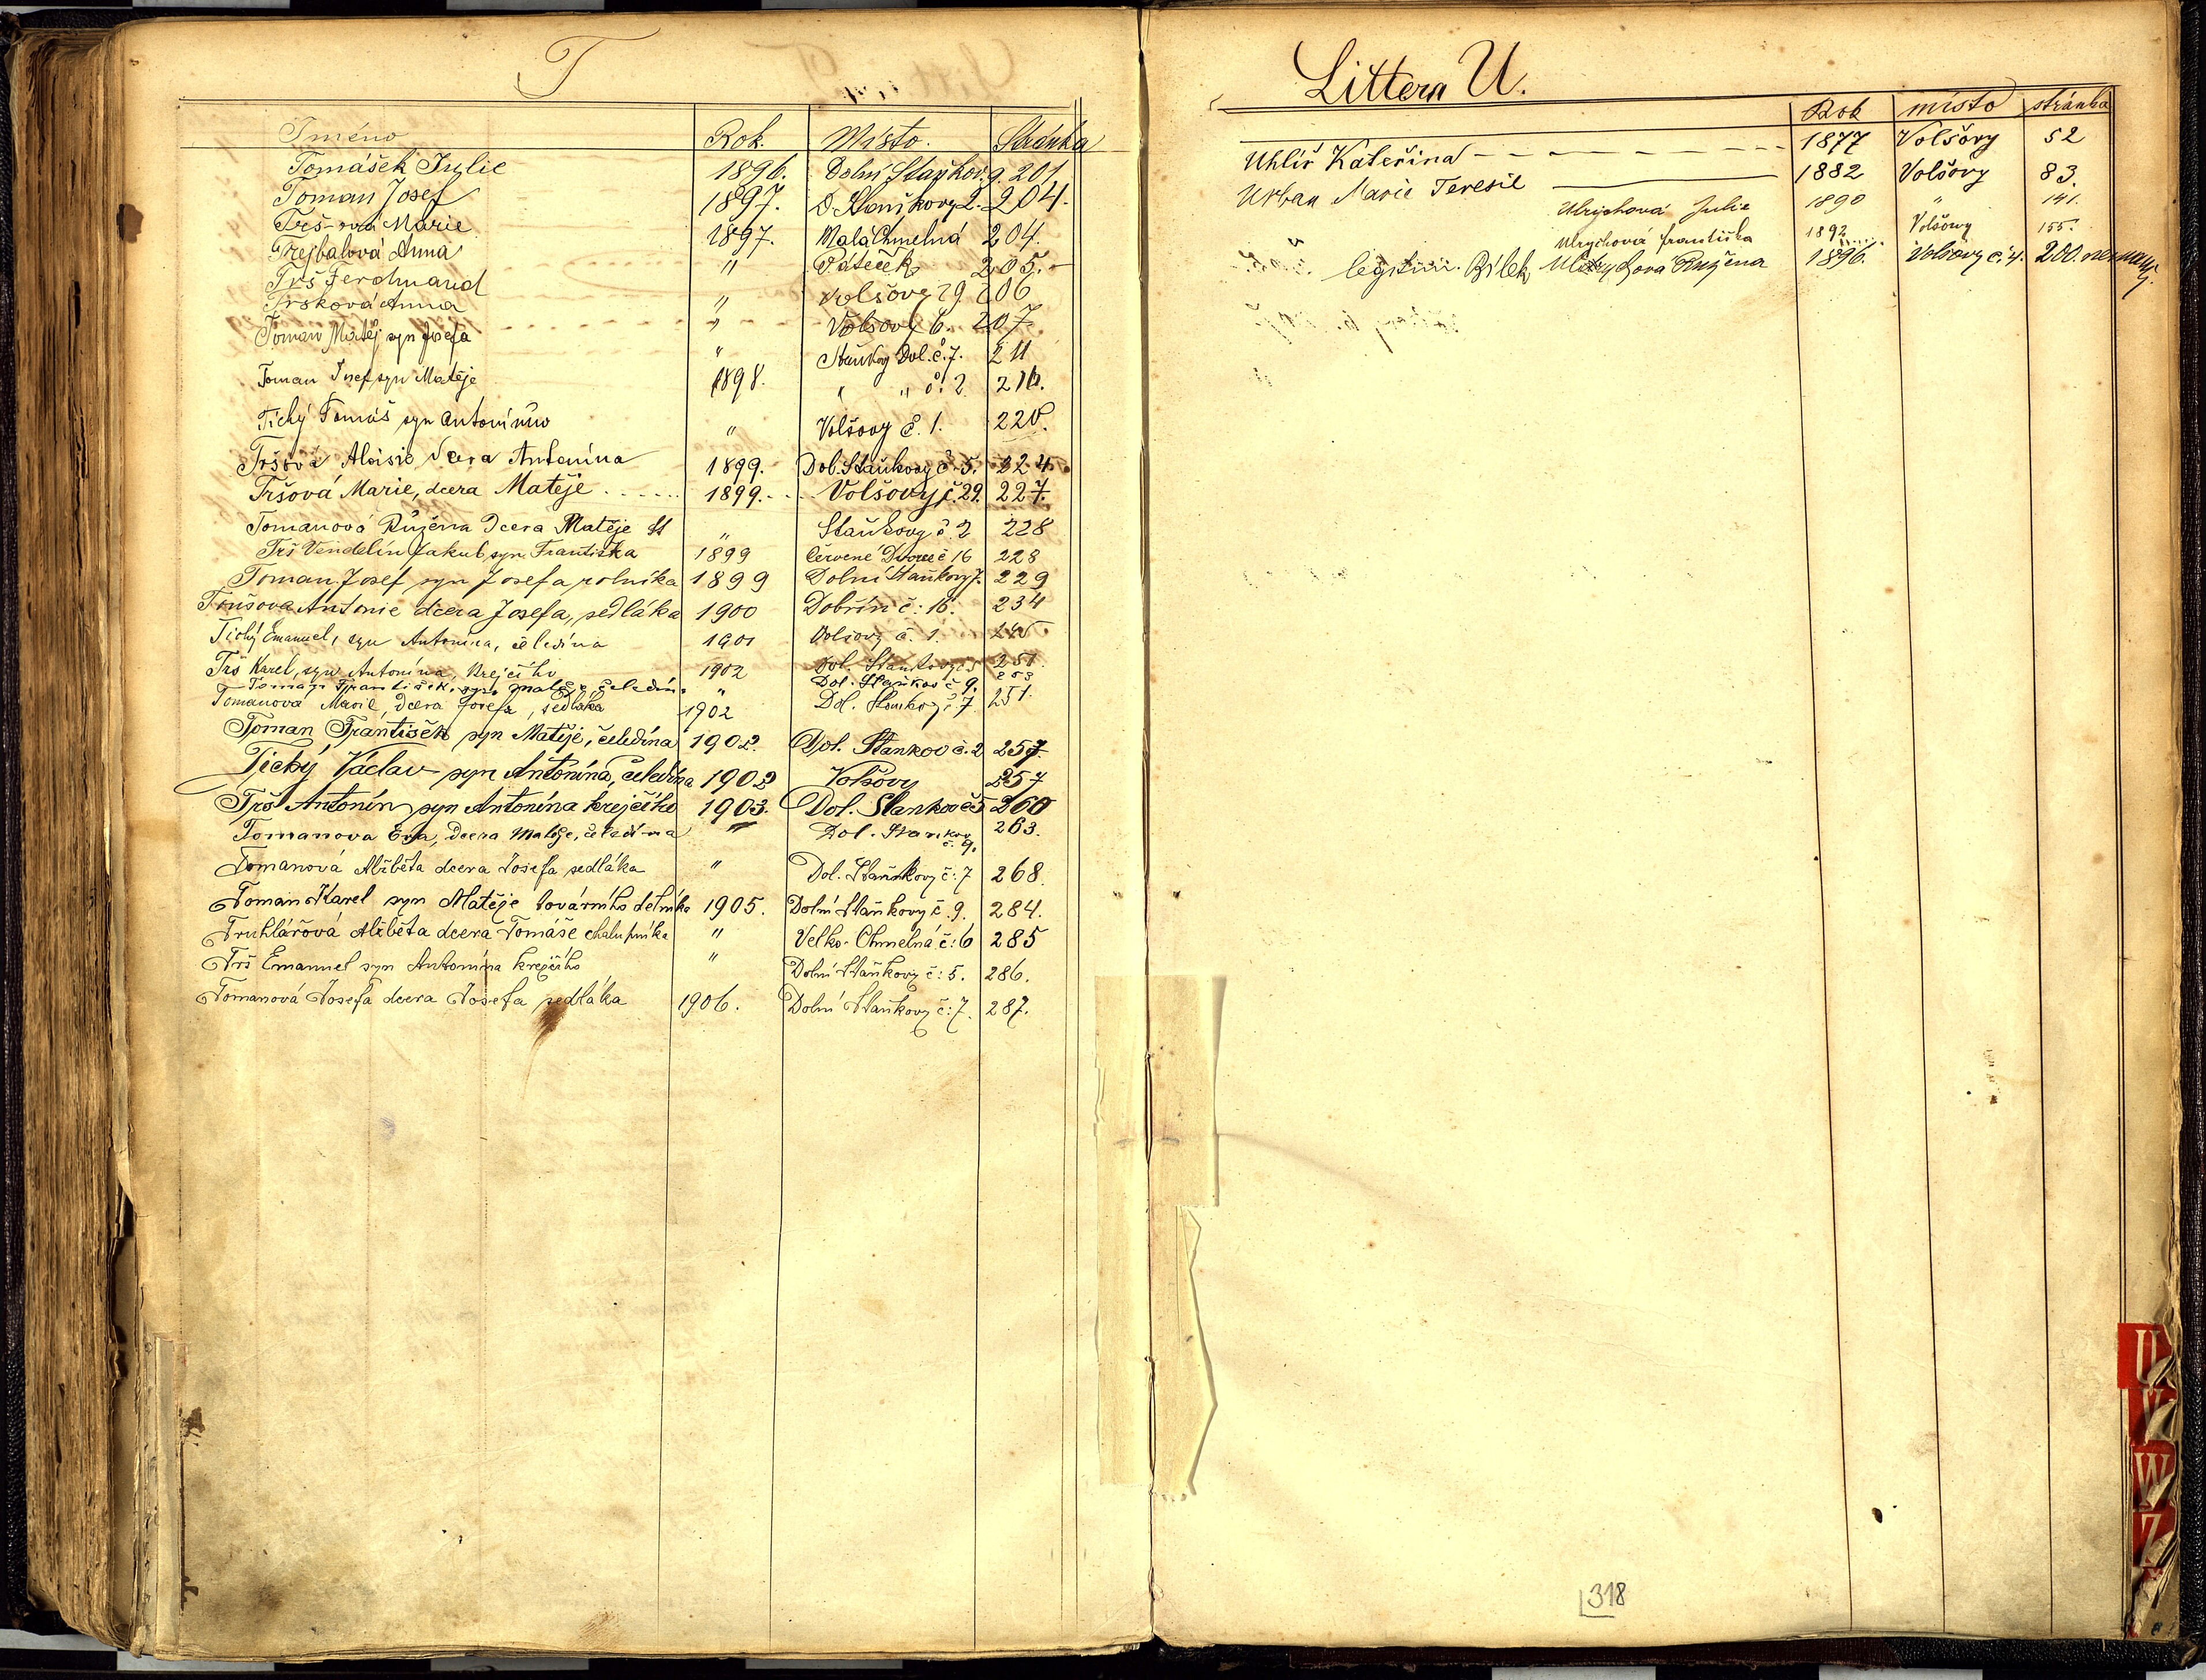 T
Jméno Rok. Místo. Stránka
Tomášek Julie 1896. Dolní Staňkov. 9. 201
Toman Josef 1897. D. Staňkovy 2. 204.
Trš-ová Marie 1897. Malá Chmelná 204.
Trejbalová Anna " Páteček 205.
Trš Ferdinand " Volšovy 29 206
Tršková Anna " Volšovy 6. 207
Toman Matěj syn Josefa " Staňkovy Dol. č. 7. 211
Toman Josef syn Matěje 1898. " " č. 2 216.
Tichý Tomáš syn Antonínův " Volšovy č. 1. 220.
Tršová Aloisie dcera Antonína 1899. Dol. Staňkovy č. 5. 224
Tršová Marie, dcera Matěje 1899. Volšovy č. 29. 227.
Tomanová Růžena dcera Matěje " Staňkovy č. 2 228
Trš Vendelín Jakub syn Františka 1899 Červené Dvorce č 16 228
Toman Josef syn Josefa rolníka 1899 Dolní Staňkovy 7. 229
Antonie dcera Josefa, sedláka 1900 Dobřín č: 16. 234
Tichý Emanuel, syn Antonína, čeledína 1901 Volšovy č. 1.
Trš Karel, syn Antonína, krejčího 1902 Dol. Staňkovy č 5 251.
Toman František, syn Matěje, čeledína " Dol. Staňkov č 9. 253
Tomanová Marie, dcera Josefa, sedláka 1902 Dol. Staňkovy č 7 251.
Toman František syn Matěje, čeledína 1902. Dol. Stankov č. 2 257.
Tichý Václav syn Antonína, čeledína 1902 Volšovy 257
Trš Antonín syn Antonína krejčího 1903. Dol. Stankov č 5 260
Tomanova Eva, dcera Matěje, čeledína " Dol. Stankov č. 9. 263.
Tomanová Alžběta dcera Josefa sedláka " Dol. Staňkovy č: 7 268.
Toman Karel syn Matěje továrního dělníka 1905. Dolní Staňkovy č. 9. 284.
Truhlářová Alžběta dcera Tomáše chalupníka " Velko-Chmelná č: 6 285
Trš Emanuel syn Antonína krejčího " Dolní Staňkovy č: 5. 286.
Tomanová Josefa dcera Josefa sedláka 1906. Dolní Staňkovy č: 7. 287.
Littera U.
Rok místo stránka
Uhlíř Kateřina 1877 Volšovy 52
Urban Marie Teresie 1882 Volšovy 83.
Ulrychová Julie 1890 " 141.
Ulrychová Františka 1892 Volšovy 155.
legitim. Bílek Ulrychová Růžena 1896. Volšovy č. 4. 200.
318
U
V
W
Z